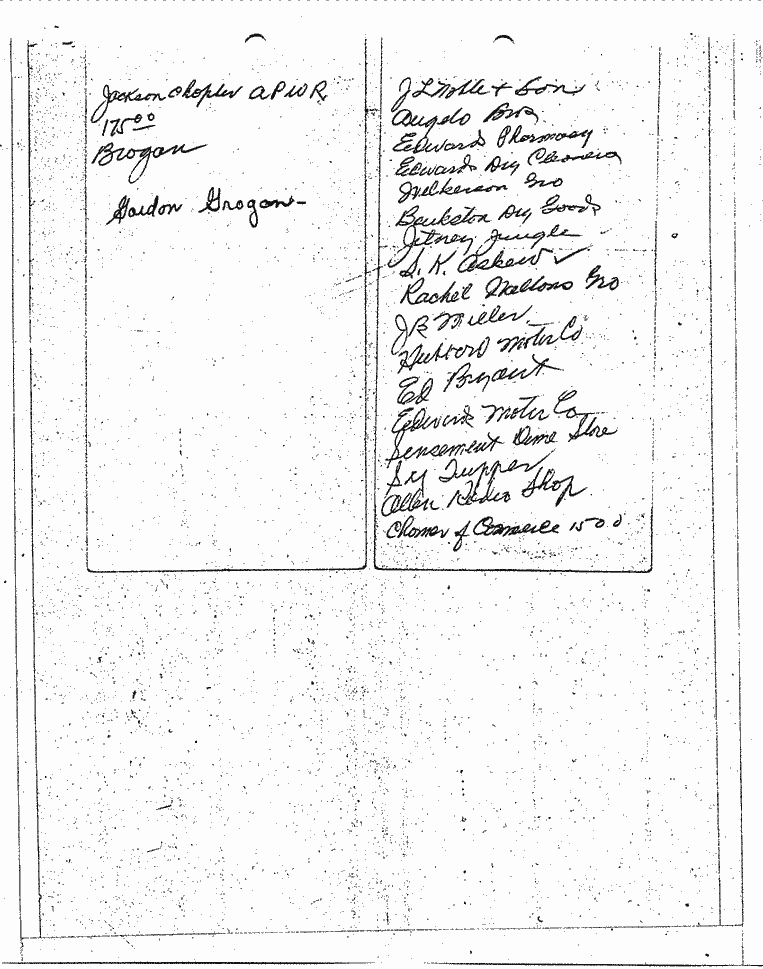 Jackson Chapter A P W R
175 00
Brogan
Gordon Grogan
J L Nolle + Son
Angelo Bros
Edwards Pharmacy
Edwards Dry Cleaners
Wilkerson Gro
Bankston Dry Goods
Jitney Jungle
S. K. Askew ✓
Rachel Gro
J B Miller
Hubbard Motor Co
Ed Bryant
Edwards Motor Co
Dime Store
Sy Tupper
Allen Radio Shop
Chamer of Commerce 15 0 0